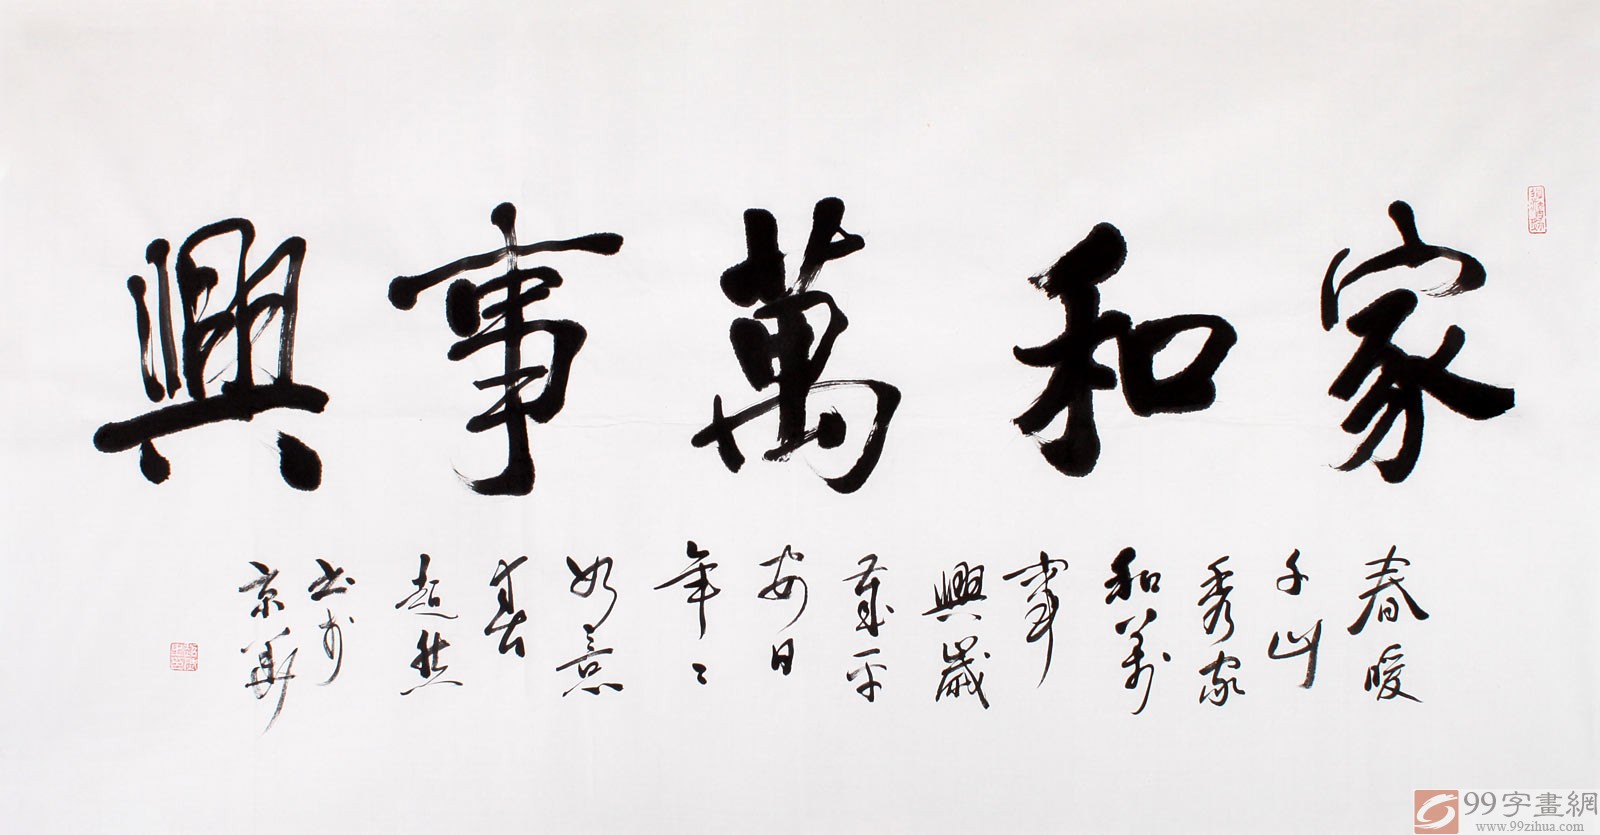 家和萬事興
春暖
千山
秀家
和萬
事
興歲
歲平
安日
年々
如意
春
超然
书於
京華
99字畫網
www.99zihua.com